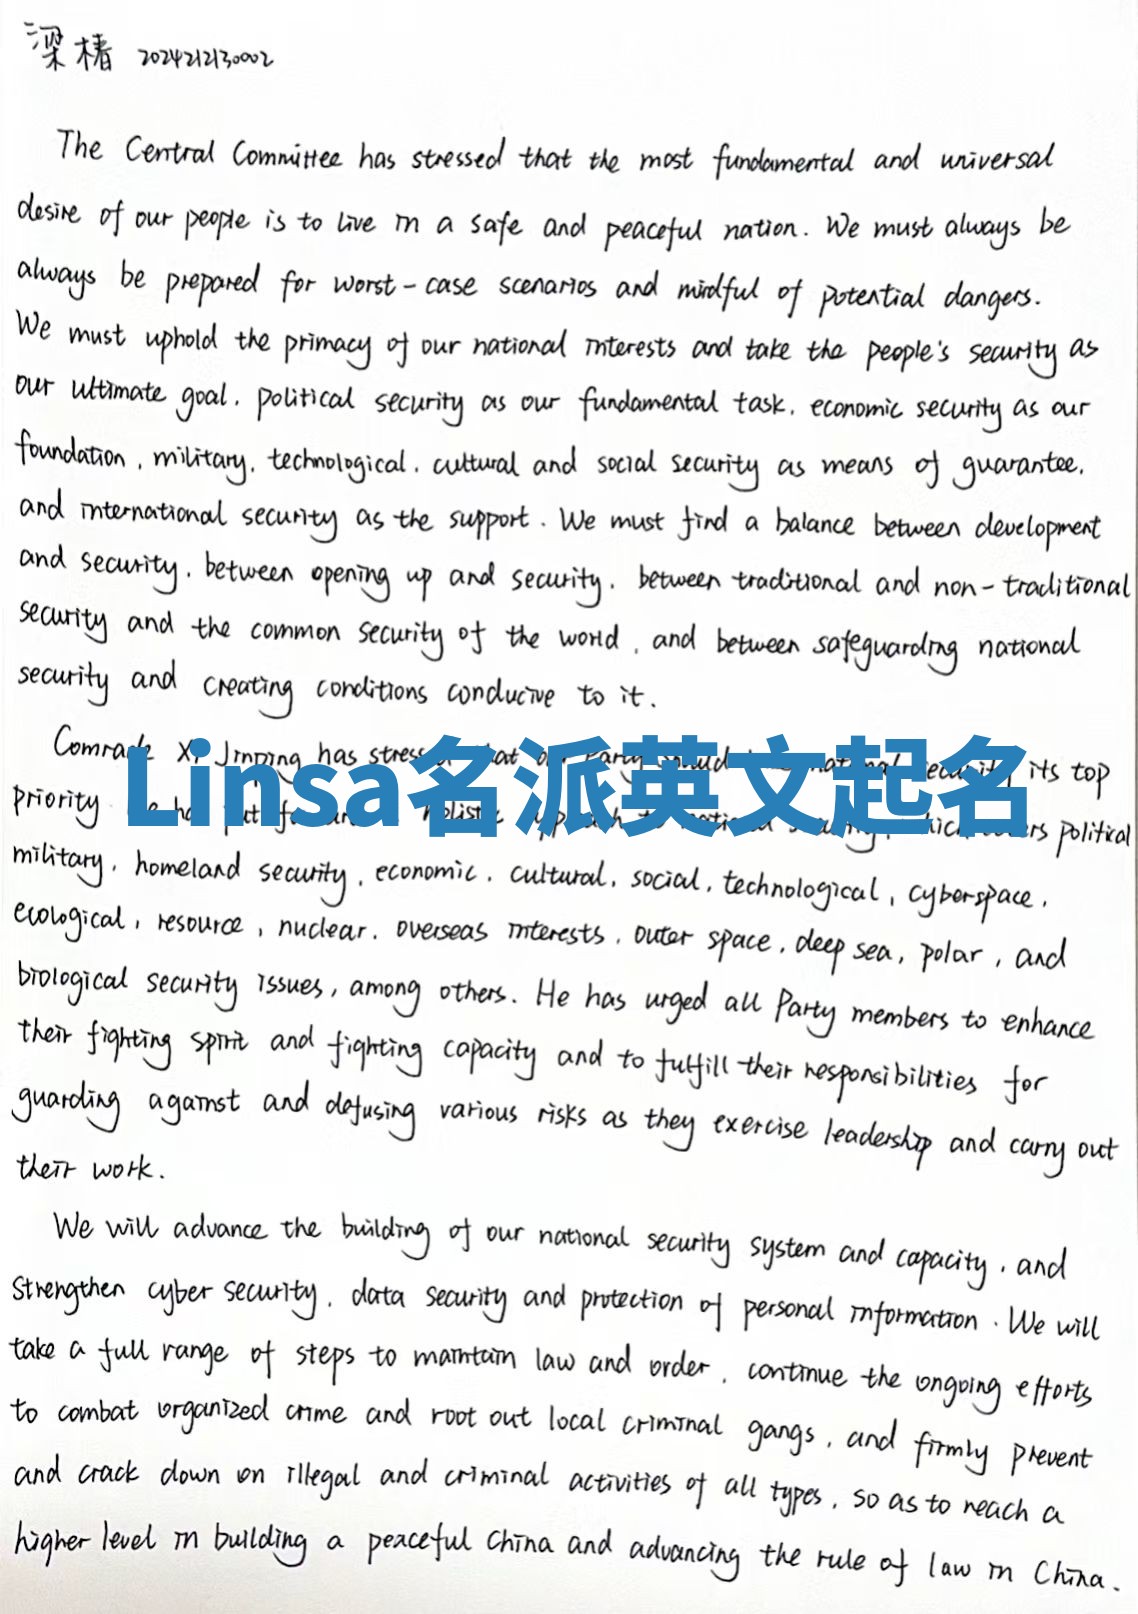 梁椿 2024212130002
The Central Committee has stressed that the most fundamental and universal
desire of our people is to live in a safe and peaceful nation. We must always be
always be prepared for worst-case scenarios and mindful of potential dangers.
We must uphold the primacy of our national interests and take the people's security as
our ultimate goal, political security as our fundamental task, economic security as our
foundation, military, technological, cultural and social security as means of guarantee,
and international security as the support. We must find a balance between development
and security, between opening up and security, between traditional and non-traditional
security and the common security of the world, and between safeguarding national
security and creating conditions conducive to it.
Comrade Xi Jinping has stressed that our Party should national security its top
Linsa名派英文起名
priority put holistic approach to national which covers political
military, homeland security, economic, cultural, social, technological, cyberspace,
ecological, resource, nuclear, overseas interests, outer space, deep sea, polar, and
biological security issues, among others. He has urged all Party members to enhance
their fighting spirit and fighting capacity and to fulfill their responsibilities for
guarding against and defusing various risks as they exercise leadership and carry out
their work.
We will advance the building of our national security system and capacity, and
strengthen cyber security, data security and protection of personal information. We will
take a full range of steps to maintain law and order, continue the ongoing efforts
to combat organized crime and root out local criminal gangs, and firmly prevent
and crack down on illegal and criminal activities of all types, so as to reach a
higher level in building a peaceful China and advancing the rule of law in China.